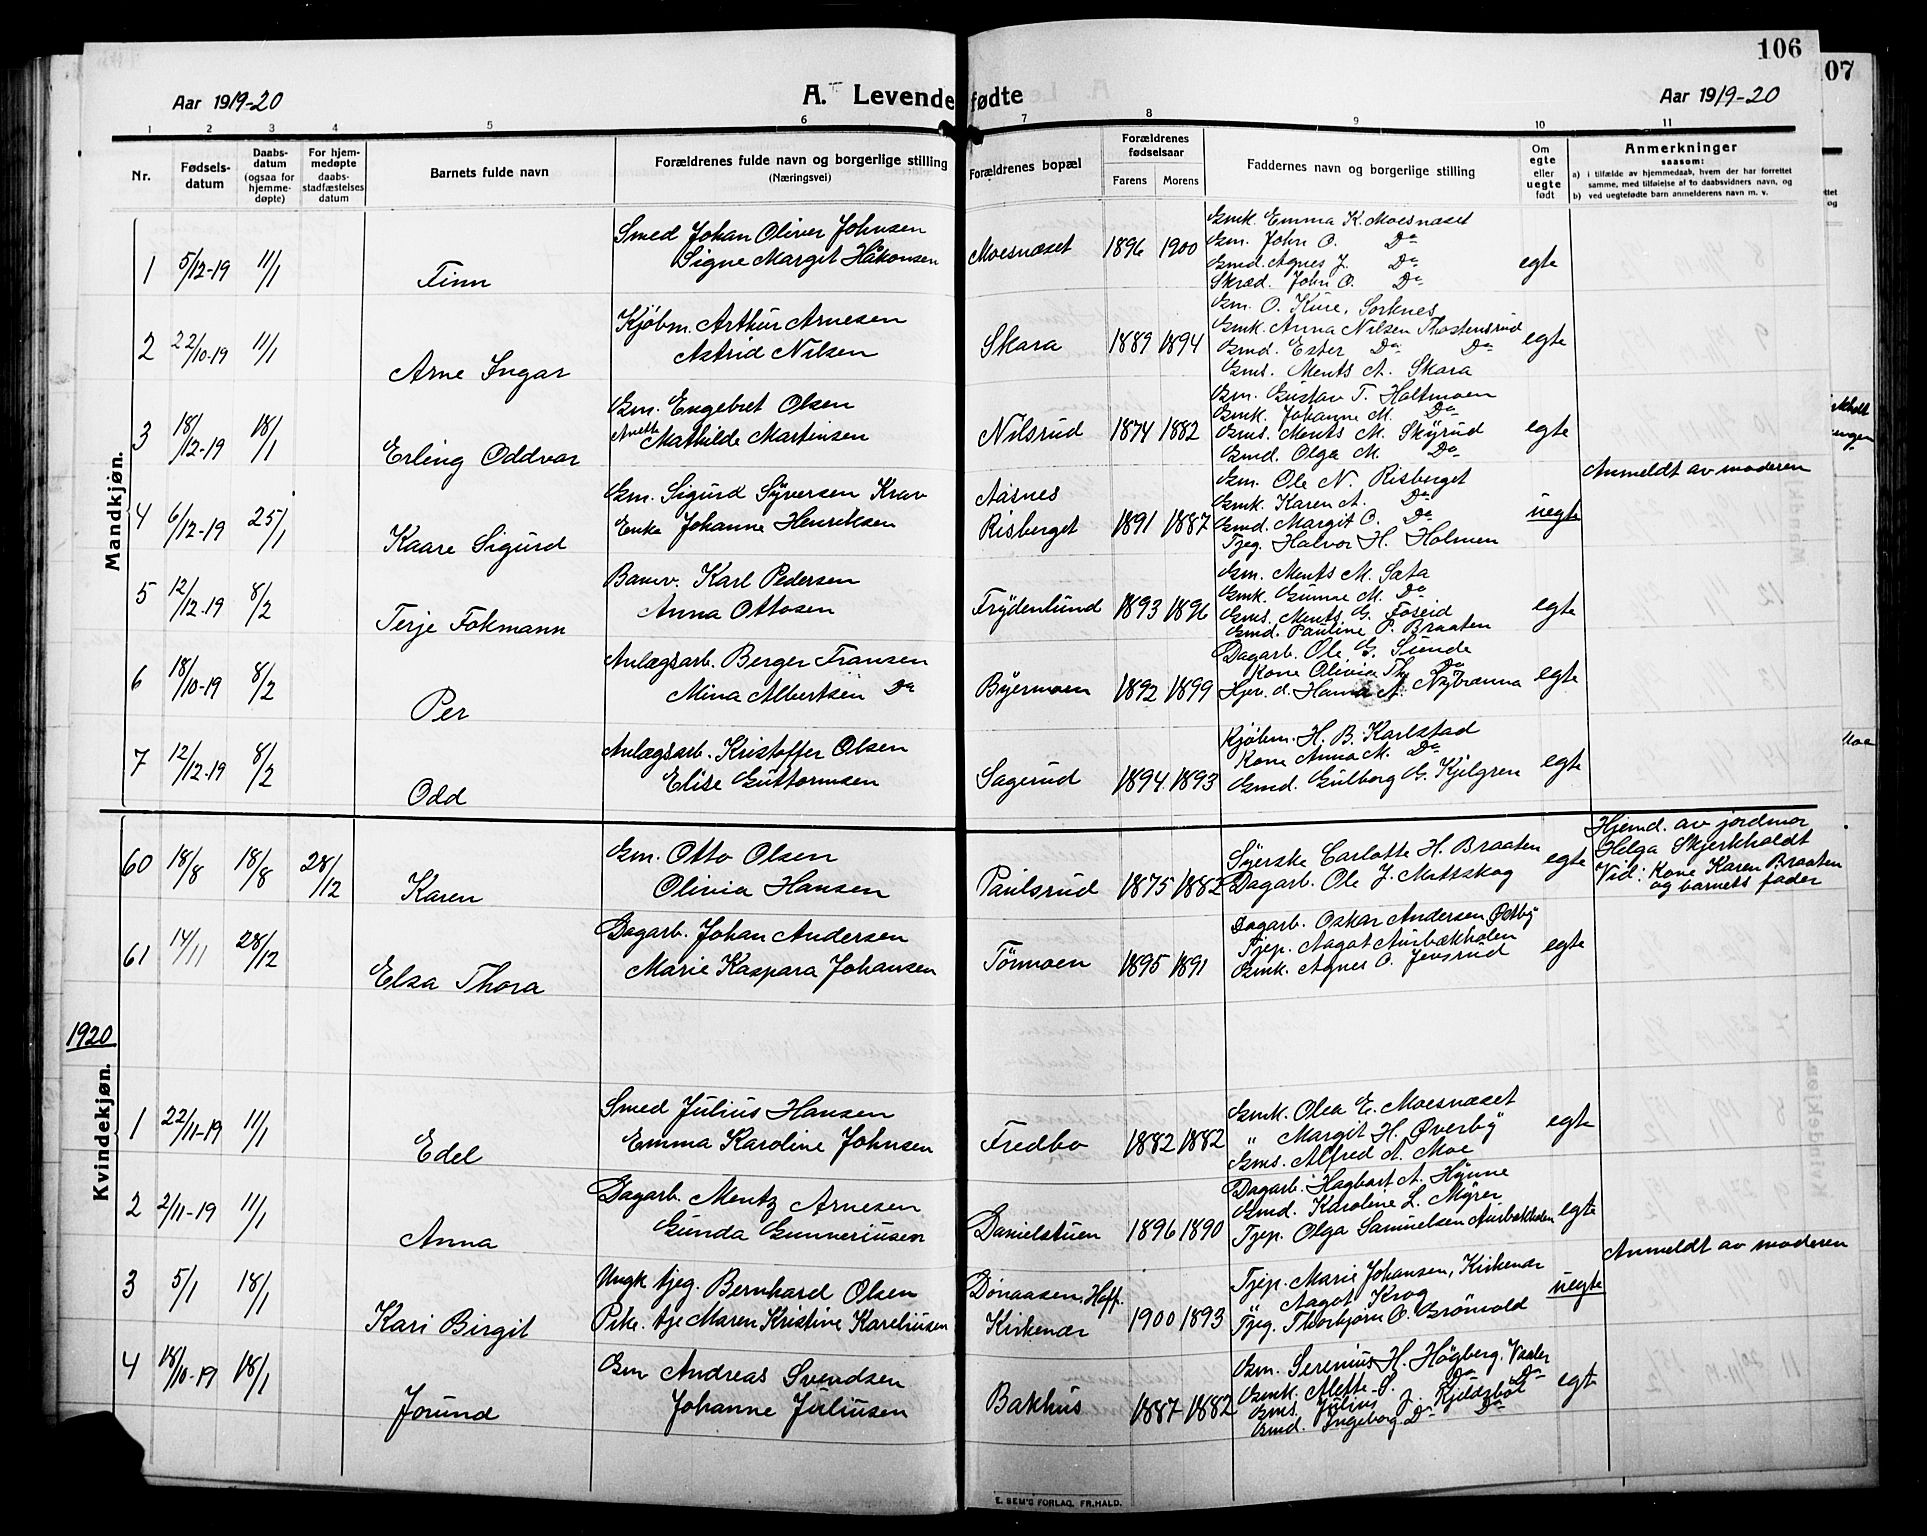 106
07
Aar 1919-20
A. Levendefødte
Aar 1919-20
1 2 3 4 5 6 7 8 9 10 11
Nr.
Fødsels-
datum
Daabs-
datum
(ogsaa for
hjemme-
døpte)
For hjem-
medøpte
daabs-
stadfæstelses
datum
Barnets fulde navn
Forældrenes fulde navn og borgerlige stilling
(Næringsvei)
Forældrenes bopæl
Forældrenes
fødselsaar
Farens Morens
Faddernes navn og borgerlige stilling
Om
egte
eller
uegte
født
Anmerkninger
saasom:
a) i tilfælde av hjemmedaab, hvem der har forrettet
samme, med tilføielse af to daabsvidners navn, og
b) ved uegtefødte barn anmelderens navn m. v.
Mandkjøn.
1 5/12-19 11/1 Finn
Smed Johan Oliver Johnsen
Signe Margit Håkonsen
Moesnæset 1896 1900
Gmk. Emma K. Moesnæset
Gm. John O. Do
Gmd. Agnes J. Do
Skræd. John O. Do
egte
2 22/10-19 11/1 Arne Ingar
Kjøbm. Arthur Arnesen
Astrid Nilsen
Skara 1889 1894
Gm. O. Kure, Sorknes
Gmk. Anna Nilsen Thostensrud
Gmd. Ester Do Do
Gms. Ments A. Skara
egte
3 18/12-19 18/1 Erling Oddvar
Gm. Engebret Olsen
Anette Mathilde Martinsen
Nilsrud 1874 1882
Gm. Gustav T. Holtmoen
Gmk. Johanne M. Do
Gms. Ments M. Skyrud
Gmd. Olga M. Do
egte
4 6/12-19 25/1 Kaare Sigurd
Gm. Sigurd Syversen Krav
Enke Johanne Henriksen
Aasnes
Risberget 1891 1887
Gm. Ole N. Risberget
Gmk. Karen A. Do
Gmd. Margit O. Do
Tjeg. Halvor H. Holmen
uegte
Anmeldt av moderen
5 12/12-19 8/2 Terje Fokmann
Banv. Karl Pedersen
Anna Ottosen
Frydenlund 1893 1896
Gm. Ments M. Sata
Gmk. Gunne M. Do
Gms. Ments G. Foseid
Gmd. Pauline P. Braaten
egte
6 18/10-19 8/2 Per
Anlægsarb. Berger Fransen
Mina Albertsen Do
Byermoen 1892 1899
Dagarb. Ole G. Sunde
Kone Olivia Th. Do
Hjv. d. Hanna A. Nybrænna
egte
7 12/12-19 8/2 Odd
Anlægsarb. Kristoffer Olsen
Elise Guttormsen
Sagerud 1894 1893
Kjøbm. H. B. Karlstad
Kone Anna M. Do
Gmd. Gulborg G. Kjelgren
egte
60 18/8 18/8 28/12 Karen
Gm. Otto Olsen
Olivia Hansen
Paulsrud 1875 1882
Syerske Carlotte H. Braaten
Dagarb. Ole J. Mattskog
egte
Hjemd. av jordmor
Helga Skjerkholdt
Vid: Kone Karen Braaten
og barnets fader
61 14/11 28/12 Elsa Thora
Dagarb. Johan Andersen
Marie Kaspara Johansen
Törmoen 1895 1891
Dagarb. Oskar Andersen, Østby
Tjep. Aagot Aurbækholen
Gmk. Agnes O. Jensrud
egte
1920
Kvindekjøn.
1 22/11-19 11/1 Edel
Smed Julius Hansen
Emma Karoline Johnsen
Fredbo 1882 1882
Gmk. Olea E. Moesnæset
" Margit H. Øverby
Gms. Alfred A. Moe
egte
2 2/11-19 11/1 Anna
Dagarb. Mentz Arnesen
Gunda Gunneriusen
Danielstuen 1896 1890
Dagarb. Hagbart A. Hynne
Gmd. Karoline L. Myrer
Tjep. Olga Samuelsen Aurbækholen
egte
3 5/1 18/1 Kari Birgit
Ungk tjeg. Bernhard Olsen
Pike. tje Maren Kristine Kareliusen
Dønaasen, Hoff.
Kirkenær 1900 1893
Tjep. Marie Johansen, Kirkenær
" Aagot Krog
Tjeg. Thorbjørn O. Grönvold
uegte
Anmeldt av moderen
4 18/10-19 18/1 Jorund
Gm Andreas Svendsen
Johanne Juliusen
Bakhus 1887 1882
Gm. Serenius H. Högberg, Vaaler
Gmk. Alette S. Do Do
Gms. Julius J. Kjeldsböl
Gmd. Ingeborg Do Do
egte
E. SEM'S FORLAG, FR.HALD.